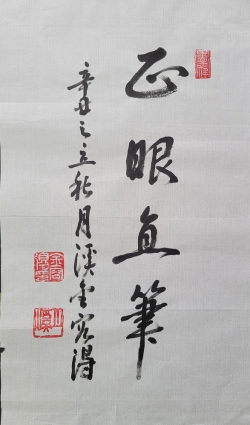 正眼直筆
辛丑之立秋月溪金容得